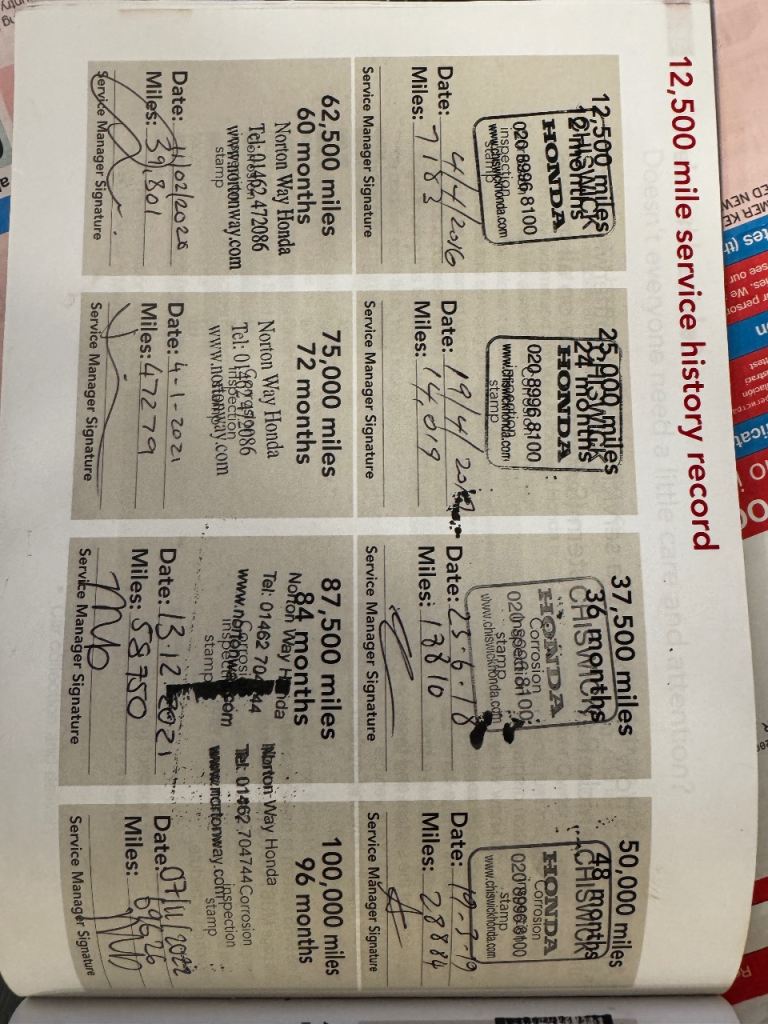 12,500 mile service history record
12,500 miles
12 months
CHISWICK
HONDA
020 8996 8100
inspection
www.chiswickhonda.com
stamp
Date: 4/4/2016
Miles: 7183
Service Manager Signature
25,000 miles
24 months
CHISWICK
HONDA
Corrosion
020 8996 8100
www.chiswickhonda.com
stamp
Date: 19/4/
Miles: 14,019
Service Manager Signature
37,500 miles
36 months
CHISWICK
HONDA
Corrosion
inspection
stamp
www.chiswickhonda.com
Date: 25.6.18
Miles: 18810
Service Manager Signature
50,000 miles
48 months
CHISWICK
HONDA
Corrosion
020 8996 8100
stamp
www.chiswickhonda.com
Date: 19-3-19
Miles: 28884
Service Manager Signature
62,500 miles
60 months
Norton Way Honda
Tel: 01462 472086
www.nortonway.com
stamp
Date: /02/2020
Miles: 39,801
Service Manager Signature
75,000 miles
72 months
Norton Way Honda
Tel: 01462 472086
inspection
www.nortonway.com
Date: 4-1-2021
Miles: 47279
Service Manager Signature
87,500 miles
84 months
Norton Way Honda
Tel: 01462 704744
Corrosion
www.nortonway.com
inspection
stamp
Date: 13.12.2021
Miles: 58750
Service Manager Signature
100,000 miles
96 months
Norton Way Honda
Tel: 01462 704744 Corrosion
www.nortonway.com
inspection
stamp
Date: 07/11/2022
Miles: 69626
Service Manager Signature